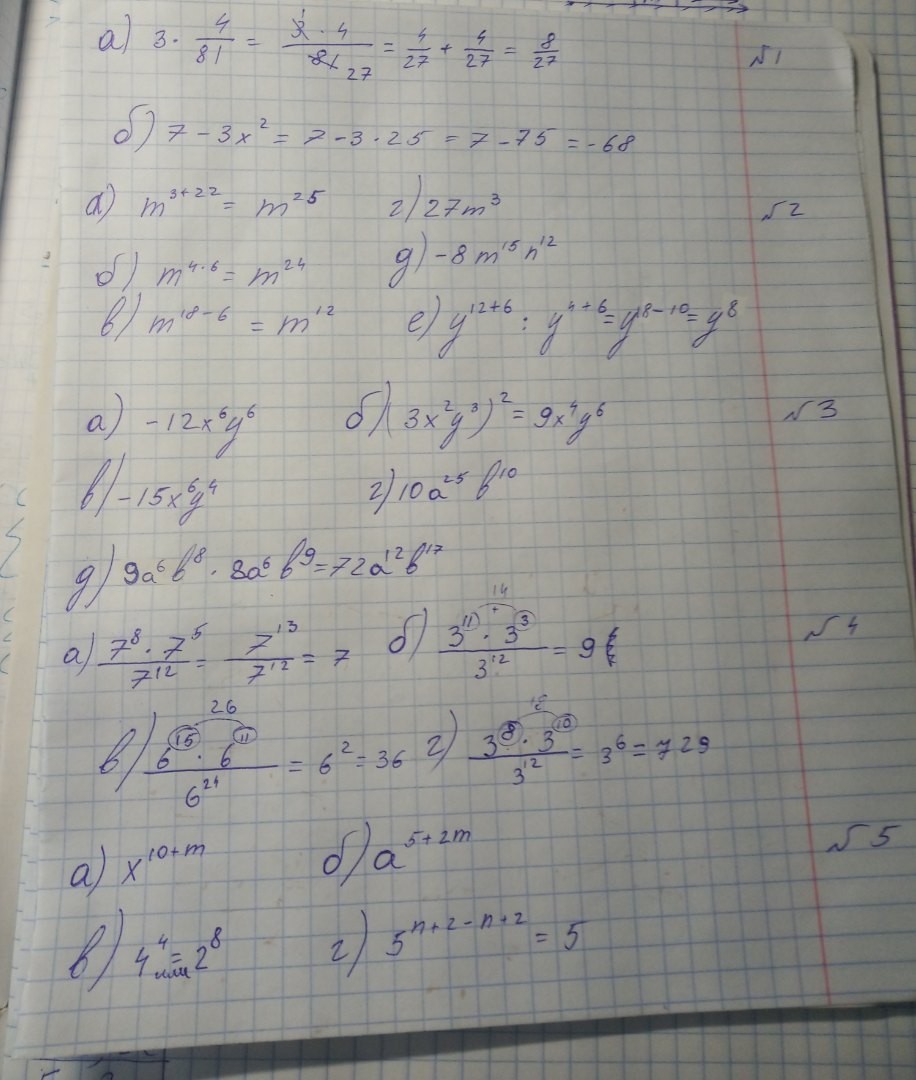 а) 3 · 4/81 = 3 · 4/81 27 = 4/27 + 4/27 = 8/27 №1
б) 7 - 3x² = 7 - 3 · 25 = 7 - 75 = -68
а) m³⁺²² = m²⁵ г) 27m³ №2
б) m⁴·⁶ = m²⁴ д) -8m¹⁵n¹²
в) m¹⁸⁻⁶ = m¹² е) y¹²⁺⁶ : y⁴⁺⁶ = y¹⁸⁻¹⁰ = y⁸
а) -12x⁶y⁶ б) (3x²y³)² = 9x⁴y⁶ №3
в) -15x⁶y⁴ г) 10a²⁵b¹⁰
д) 9a⁶b⁸ · 8a⁶b⁹ = 72a¹²b¹⁷
14
а) 7⁸ · 7⁵/7¹² = 7¹³/7¹² = 7 б) 3¹¹ · 3³/3¹² = 9 №4
26 18
в) 6¹⁵ · 6¹¹/6²⁴ = 6² = 36 г) 3⁸ · 3¹⁰/3¹² = 3⁶ = 729
а) x¹⁰⁺ᵐ б) a⁵⁺²ᵐ №5
в) 4⁴ = или 2⁸ г) 5ⁿ⁺²⁻ⁿ⁺² = 5